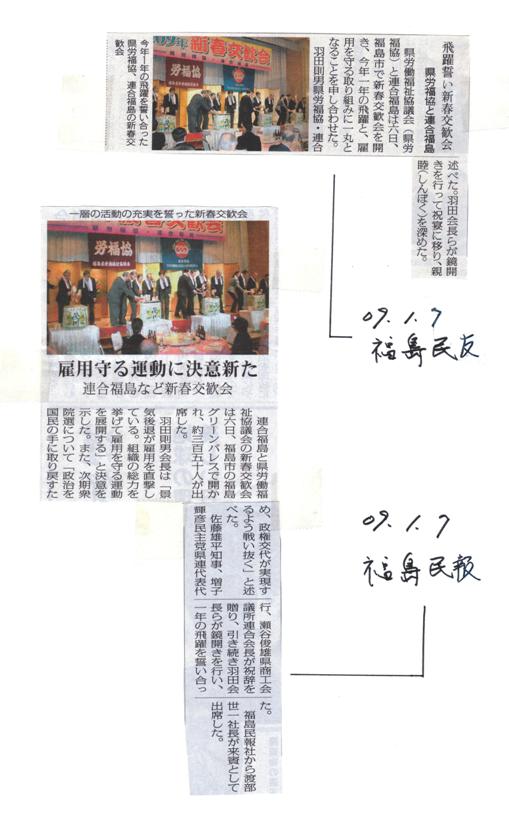 飛躍誓い新春交歓会
県労福協と連合福島
県労働福祉協議会（県労
福協）と連合福島は六日、
福島市で新春交歓会を開
き、今年一年の飛躍と、雇
用を守る取り組みに一丸と
なることを申し合わせた。
羽田則男県労福協・連合
09年 新春交歓会
労福協
今年1年の飛躍を誓い合った
県労福協、連合福島の新春交
歓会
述べた。羽田会長らが鏡開
きを行って祝宴に移り、親
睦（しんぼく）を深めた。
09.1.7
福島民友
一層の活動の充実を誓った新春交歓会
新春交歓会
労福協
雇用守る運動に決意新た
連合福島など新春交歓会
連合福島と県労働福
祉協議会の新春交歓会
は六日、福島市の福島
グリーンパレスで開か
れ、約三百五十人が出
席した。
羽田則男会長は「景
気後退が雇用を直撃し
ている。組織の総力を
挙げて雇用を守る運動
を展開する」と決意を
示した。また、次期衆
院選について「政治を
国民の手に取り戻すた
め、政権交代が実現す
るよう戦い抜く」と述
べた。
佐藤雄平知事、増子
輝彦民主党県連代表代
行、瀬谷俊雄県商工会
議所連合会長が祝辞を
贈り、引き続き羽田会
長らが鏡開きを行い、
一年の飛躍を誓い合っ
た。
福島民報社から渡部
世一社長が来賓として
出席した。
09.1.7
福島民報